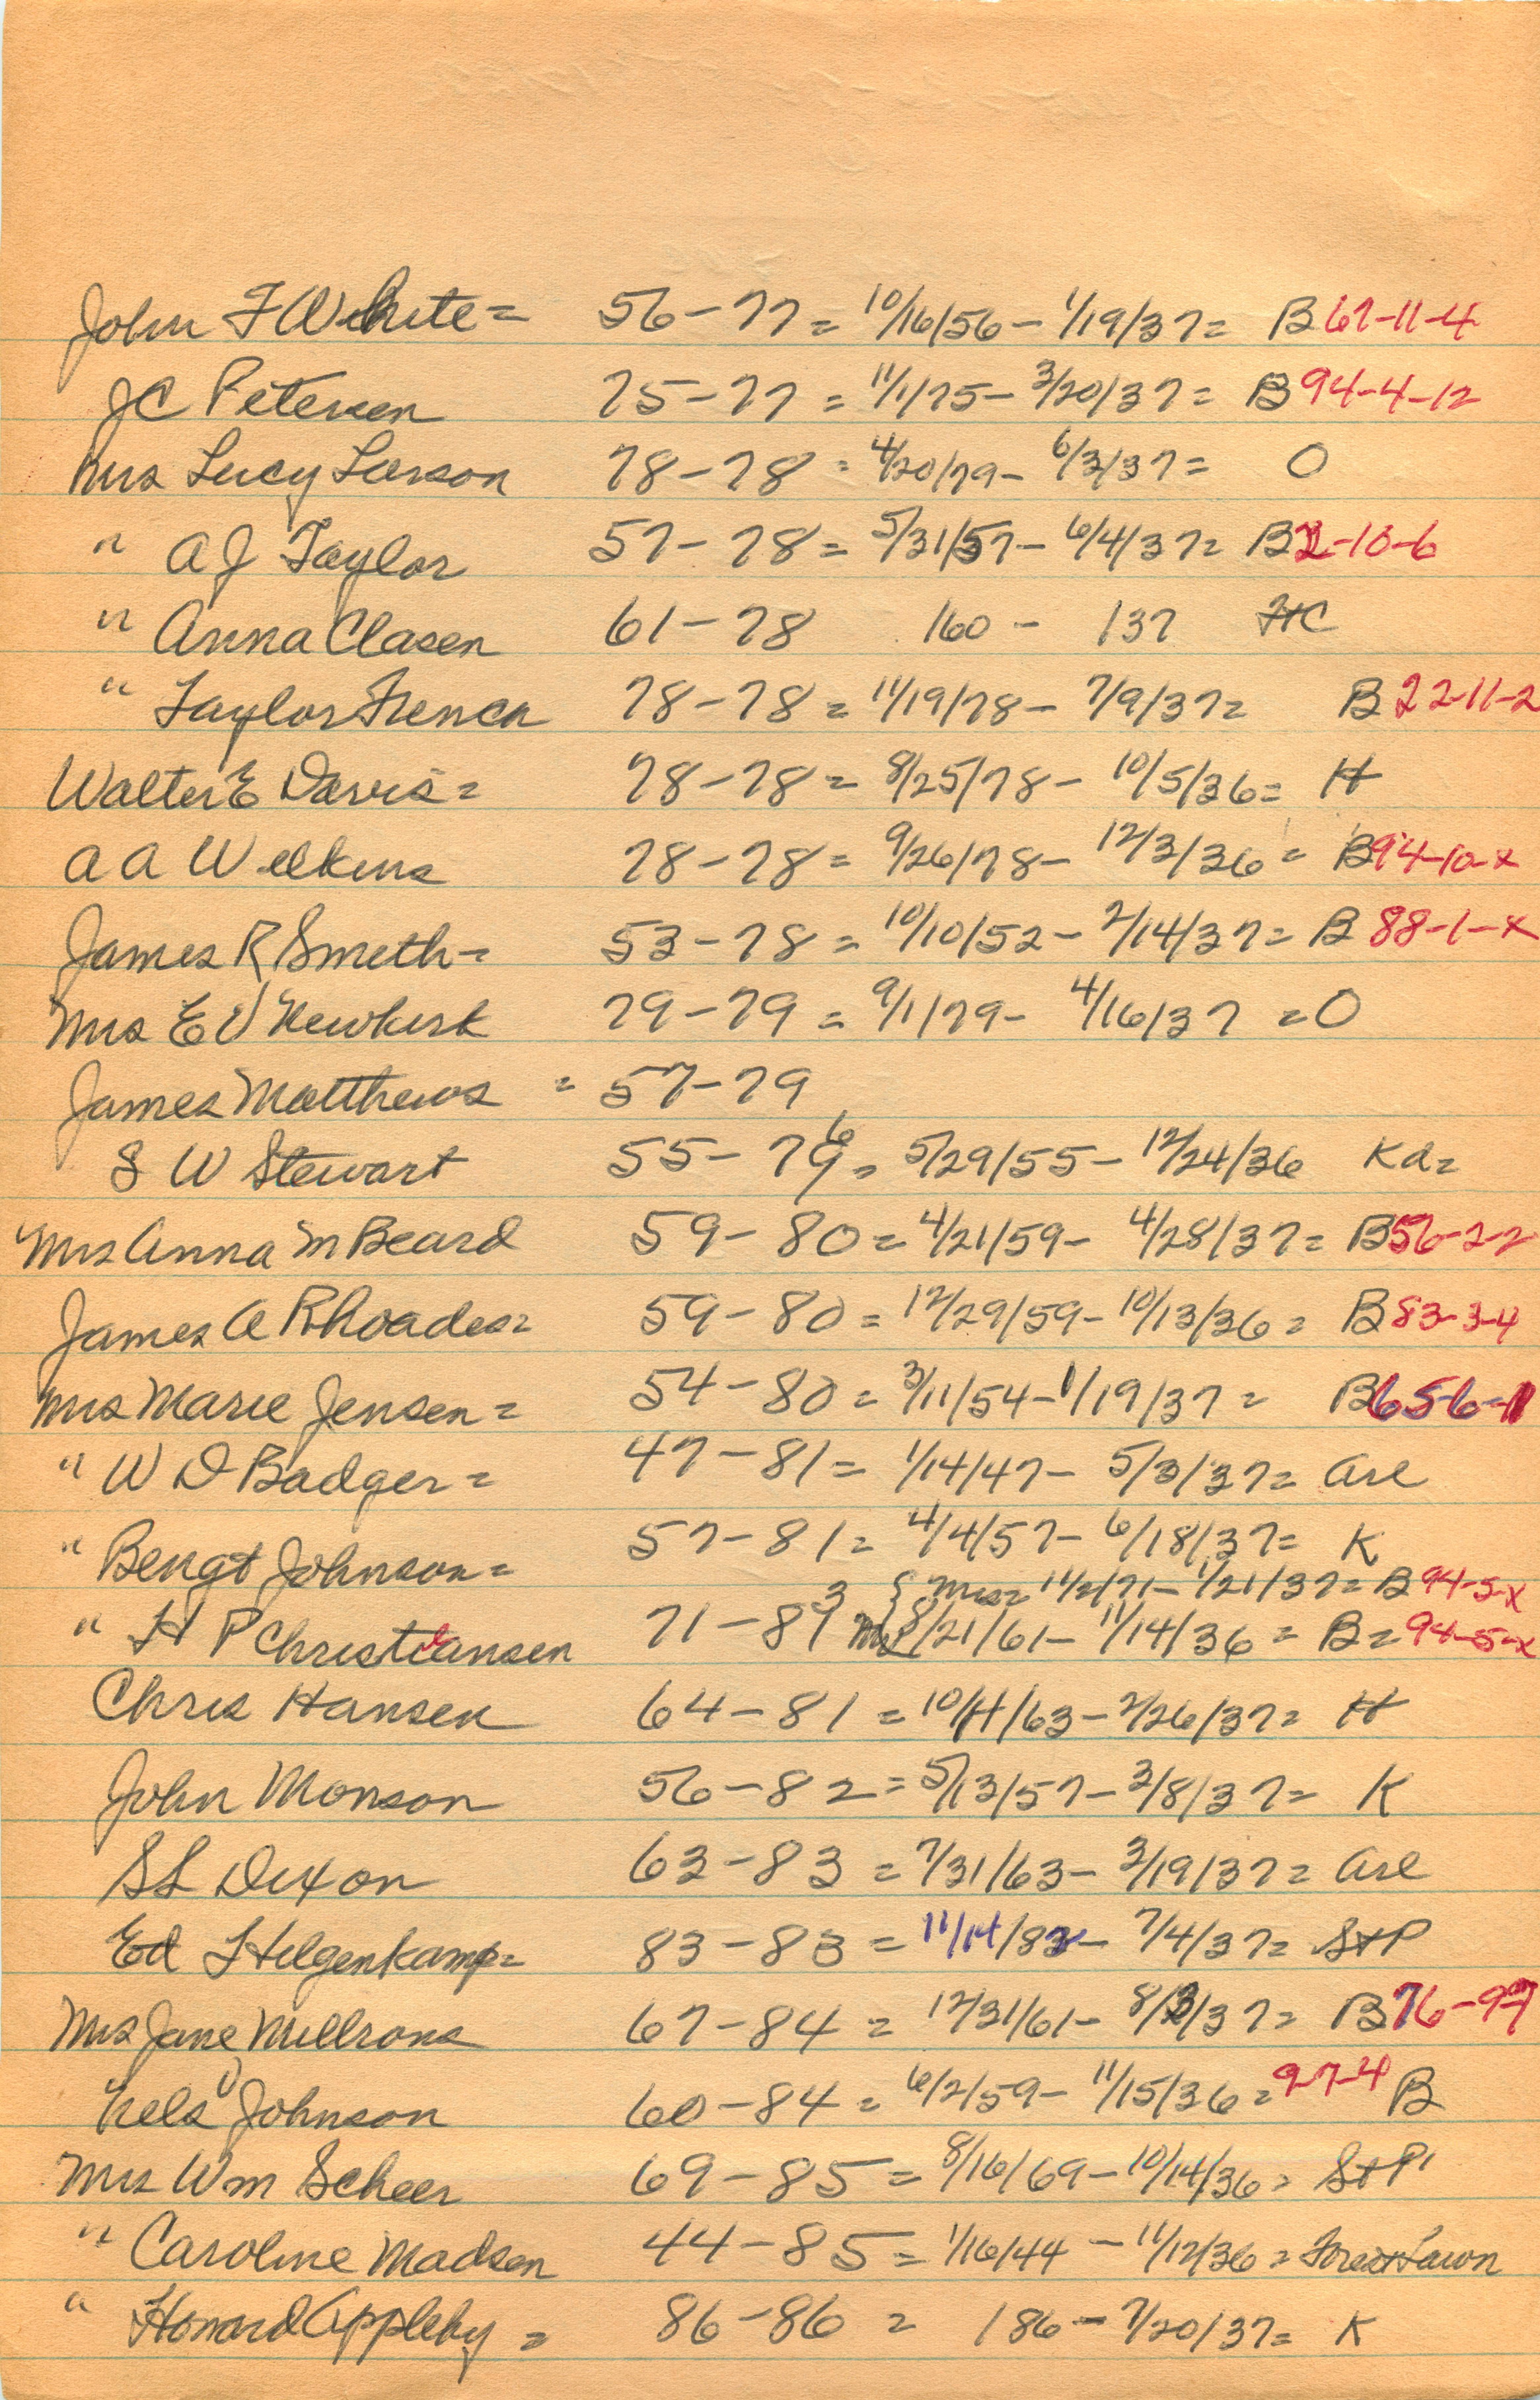 John F White = 56-77 = 10/16/56 - 1/19/37 = B 67-11-4
JC Petersen 75-77 = 11/1/75 - 3/20/37 = B 94-4-12
Mrs Lucy Larson 78-78 = 4/20/79 - 6/3/37 = O
" A J Taylor 57-78 = 5/31/57 - 6/4/37 = B 2-10-6
" Anna Clasen 61-78 160 - 137 HC
" Taylor French 78-78 = 11/19/78 - 7/9/37 = B 22-11-2
Walter E Davis = 78-78 = 8/25/78 - 10/5/36 = H
A A Wilkins 78-78 = 9/26/78 - 12/3/36 = B 94-10-x
James R Smith = 53-78 = 10/10/52 - 2/14/37 = B 88-1-x
Mrs E V Newkirk 79-79 = 9/1/79 - 4/16/37 = O
James Matthews = 57-79
S W Stewart 55-79 6 = 5/29/55 - 12/24/36 Ka =
Mrs Anna M Beard 59-80 = 4/21/59 - 4/28/37 = B 56-2-2
James A Rhoades = 59-80 = 12/29/59 - 10/13/36 = B 83-3-4
Mrs Marie Jensen = 54-80 = 3/11/54 - 1/19/37 = B 65-6-11
" W D Badger = 47-81 = 1/14/47 - 5/3/37 = Arl
" Bengt Johnson = 57-81 = 4/4/57 - 6/18/37 = K
{ Mrs = 11/2/71 - 1/21/37 = B 94-5-x
" H P Christiansen 71-81 3 Mr 8/21/61 - 11/14/36 = B = 94-5-x
Chris Hansen 64-81 = 10/4/63 - 2/26/37 = H
John Monson 56-82 = 5/13/57 - 3/8/37 = K
S L Dixon 63-83 = 7/31/63 - 3/19/37 = Arl
Ed F Hilgenkamp = 83-83 = 11/14/83 - 7/4/37 = St P
Mrs Jane Millrons 67-84 = 12/31/61 - 8/3/37 = B 76-9-7
Nels Johnson 60-84 = 6/2/59 - 11/15/36 = 9-7-4 B
Mrs Wm Scheer 69-85 = 8/16/69 - 10/14/36 = St P
" Caroline Madsen 44-85 = 1/16/44 - 11/12/36 = Forest Lawn
" Howard Appleby = 86-86 = 186 - 7/20/37 = K